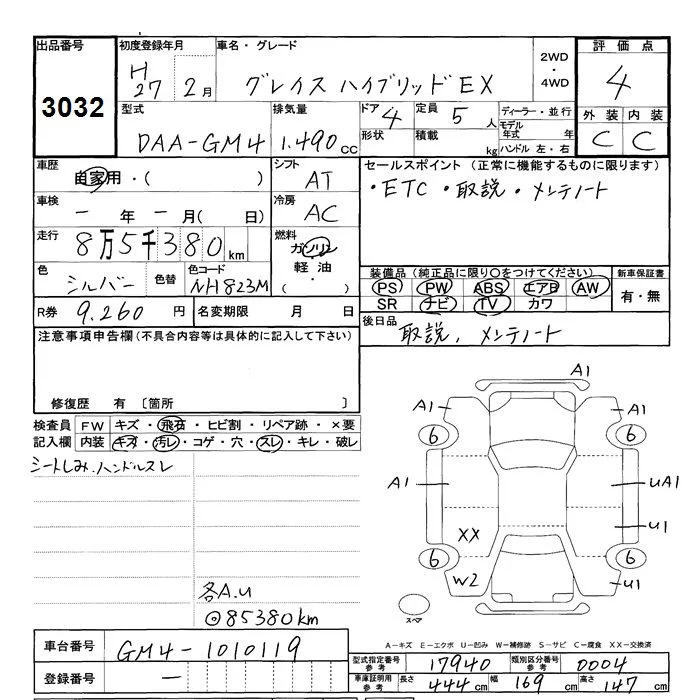 出品番号 初度登録年月 車名・グレード 2WD・4WD 評価点
3032 H27 2月 グレイス ハイブリッドEX 4
型式 排気量 ドア 4 定員 5人 ディーラー・並行 外装 内装
DAA-GM4 1.490cc 形状 積載 kg モデル年式 年 C C
ハンドル 左・右
車歴 シフト セールスポイント (正常に機能するものに限ります)
自家用・( ) AT ・ETC ・取説・メンテノート
車検 冷房
ー年ー月( 日) AC
走行 燃料
8万5千380km ガソリン
軽油・( )
色 色替 色コード 装備品(純正品に限り○をつけてください) 新車保証書
シルバー NH823M PS PW ABS エアB AW 有・無
SR ナビ TV カワ
R券 9.260円 名変期限 月 日 後日品 取説, メンテノート
注意事項申告欄(不具合内容等は具体的に記入して下さい)
修復歴 有 〔箇所 〕
検査員 FW キズ・飛石・ヒビ割・リペア跡・×要
記入欄 内装 キズ・汚レ・コゲ・穴・スレ・キレ・破レ
シートしみ.ハンドルスレ
各A.U
◎85380km
A1
A1 A1
6 6
A1 UA1
XX U1
6 6
W2 U1
スペア
A-キズ E-エクボ U-凹み W-補修跡 S-サビ C-腐食 XX-交換済
車台番号 GM4-1010119
型式指定番号 参考 17940 類別区分番号 参考 0004
登録番号 ー
車庫証明用 参考 長さ 444cm 幅 169cm 高さ 147cm